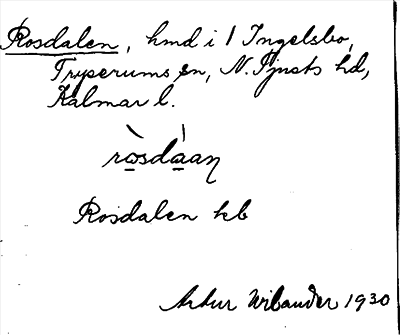 Rosdalen, hmd i 1 Ingelsbo,
Tryserums sn, N. Tjusts hd,
Kalmar l.
ròsdáaṇ
Rosdalen kb
Artur Wibander 1930